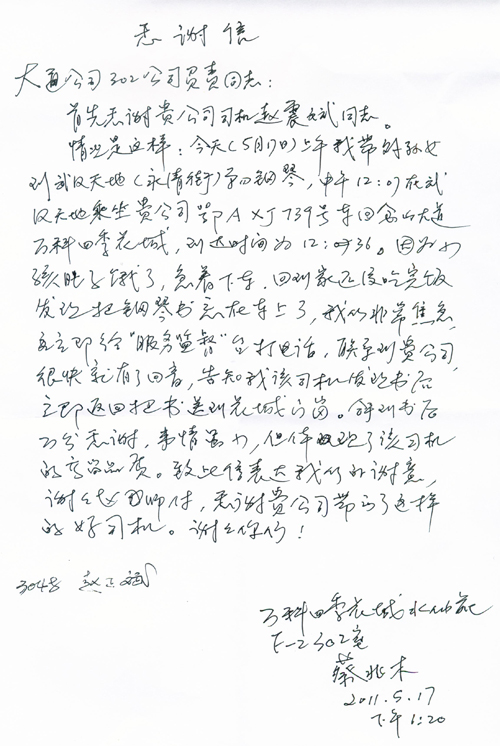 感谢信
大通公司302公司负责同志：
首先感谢贵公司司机赵震斌同志。
情况是这样：今天(5月17日)上午我带外孙女
到武汉天地(永清街)学钢琴，中午12:07在武
汉天地乘坐贵公司鄂AXJ739号车回金山大道
万科四季花城，到达时间为12:36。因为小
孩肚子饿了，急着下车，回到家还没吃完饭
发现把钢琴书忘在车上了，我们非常焦急
立即给“服务监督”台打电话，联系到贵公司
很快就有了回音，告知我该司机发现书后
立即返回把书送到花城门岗。拿到书后
万分感谢，事情虽小，但体现了该司机
的高尚品质。致此信表达我们的谢意，
谢谢赵师付，感谢贵公司带了这样
的好司机。谢谢你们！
3048 赵
万科四季花城水仙苑
E-2 302室
蔡兆木
2011.5.17
下午1:20